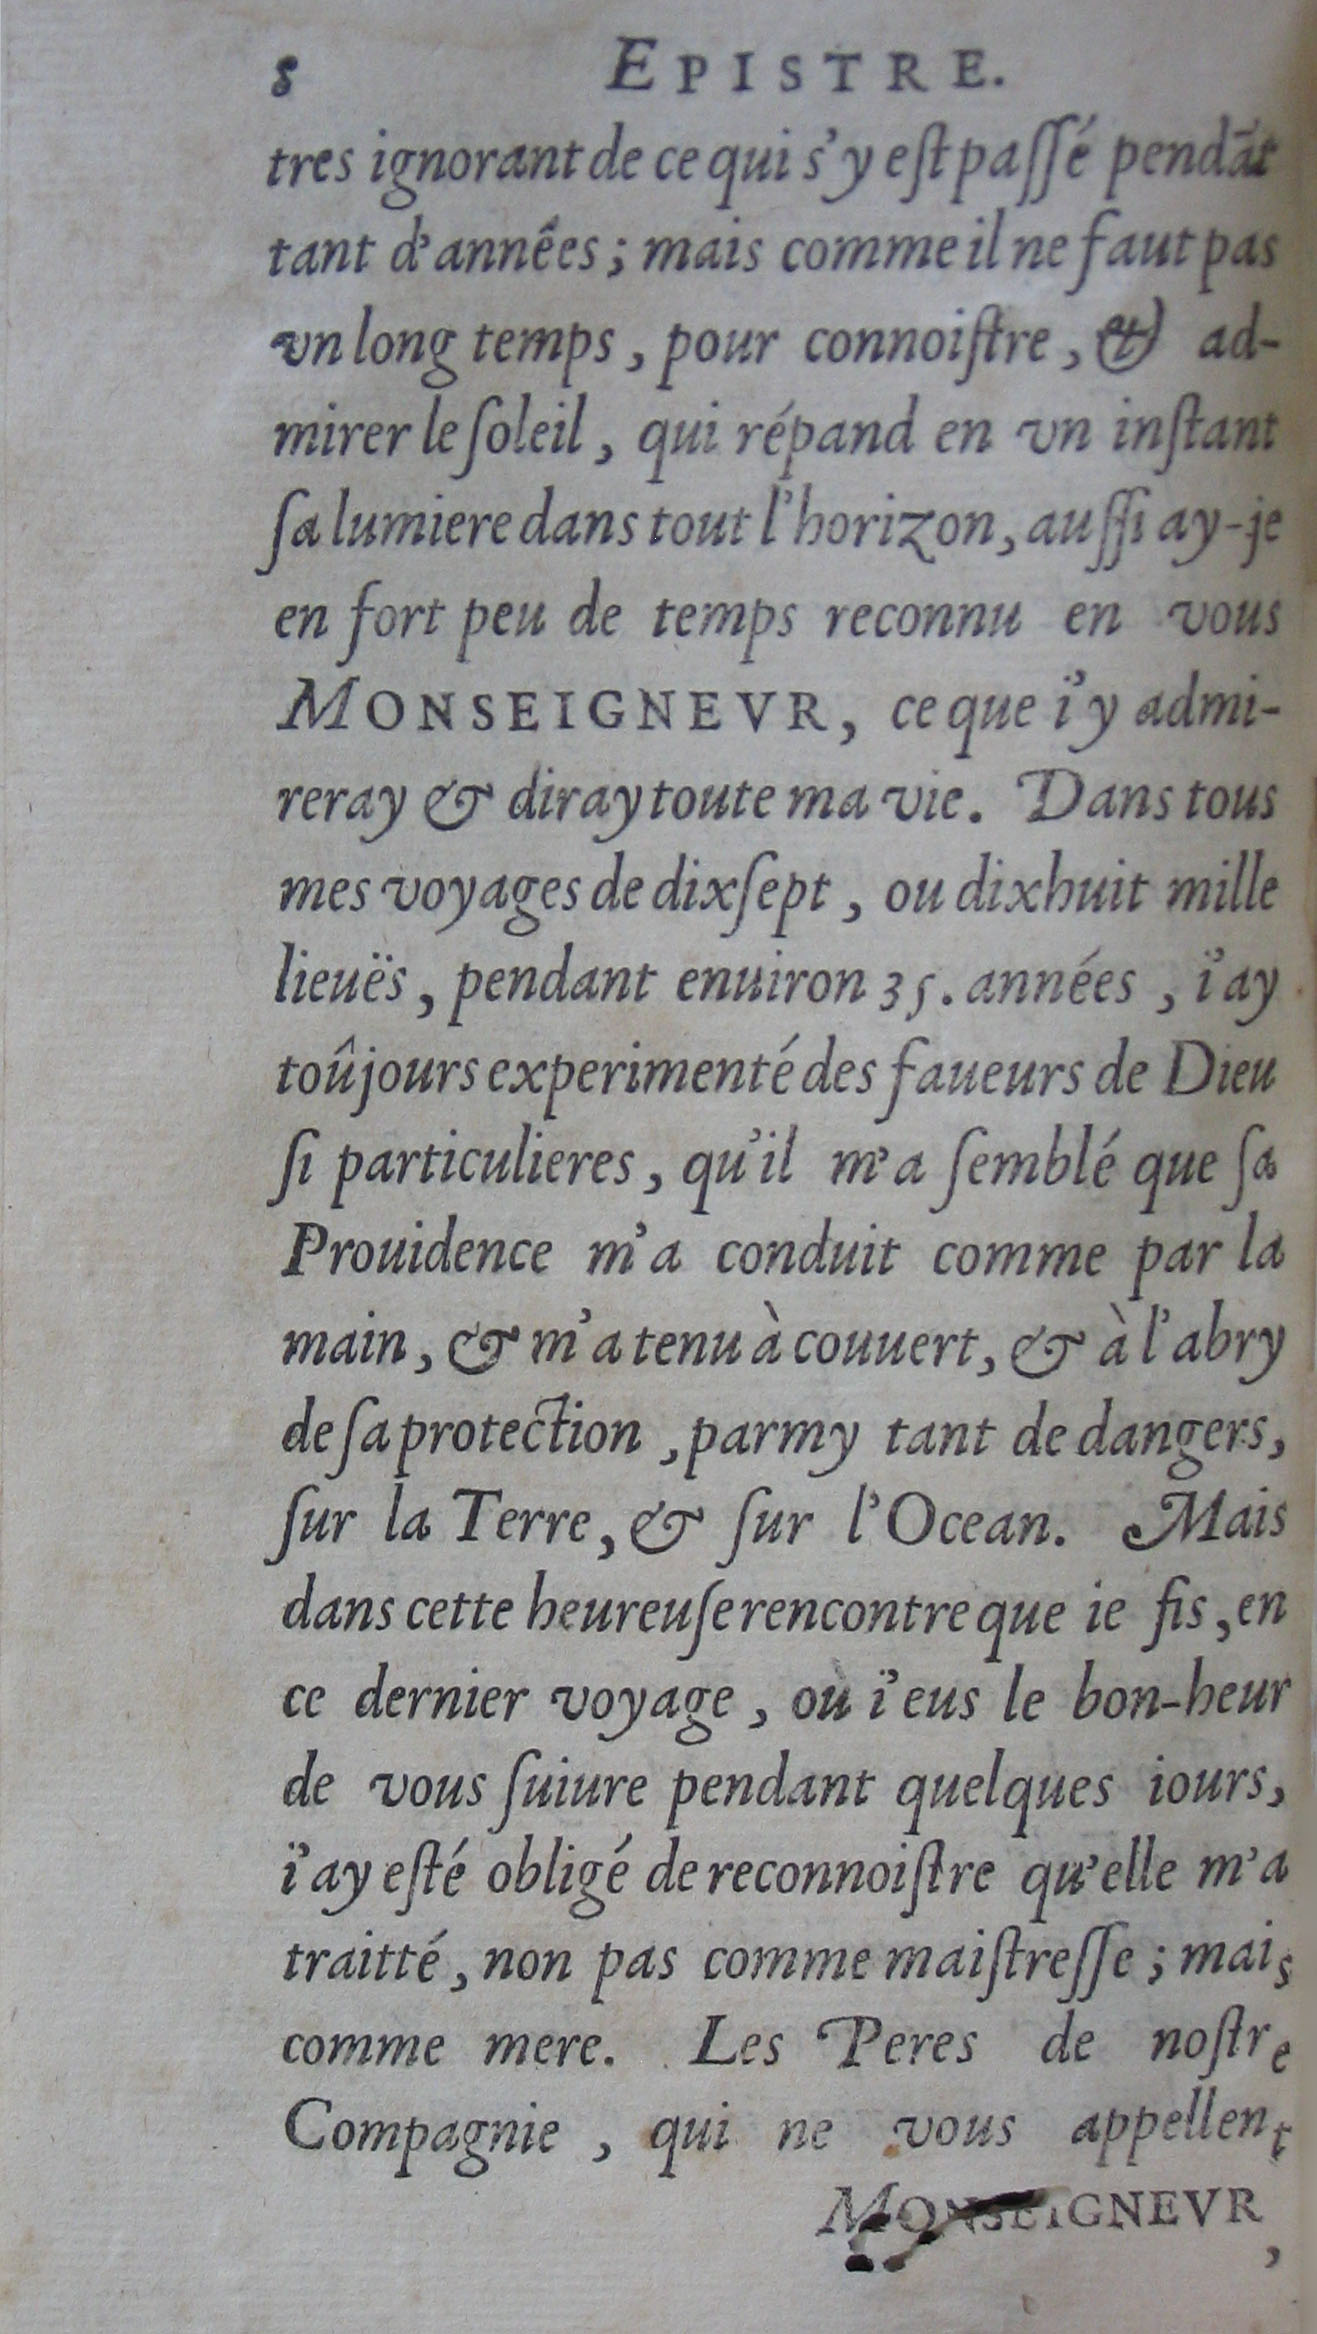 8 EPISTRE.
tres ignorant de ce qui s'y eſt paſſé pendãt
tant d'annêes ; mais comme il ne faut pas
vn long temps , pour connoiſtre , & ad-
mirer le ſoleil , qui répand en vn inſtant
ſa lumiere dans tout l'horizon, auſſi ay-je
en fort peu de temps reconnu en vous
MONSEIGNEVR, ce que i'y admi-
reray & diray toute ma vie. Dans tous
mes voyages de dixſept , ou dixhuit mille
lieuës , pendant enuiron 35. années , i'ay
toûjours experimenté des faueurs de Dieu
ſi particulieres , qu'il m'a ſemblé que ſa
Prouidence m'a conduit comme par la
main , & m'a tenu à couuert, & à l'abry
de ſa protection , parmy tant de dangers,
ſur la Terre, & ſur l'Ocean. Mais
dans cette heureuſe rencontre que ie fis , en
ce dernier voyage , où i'eus le bon-heur
de vous ſuiure pendant quelques iours,
i'ay eſté obligé de reconnoiſtre qu'elle m'a
traitté , non pas comme maiſtreſſe ; mais
comme mere. Les Peres de noſtre
Compagnie , qui ne vous appellent
MONSEIGNEVR,